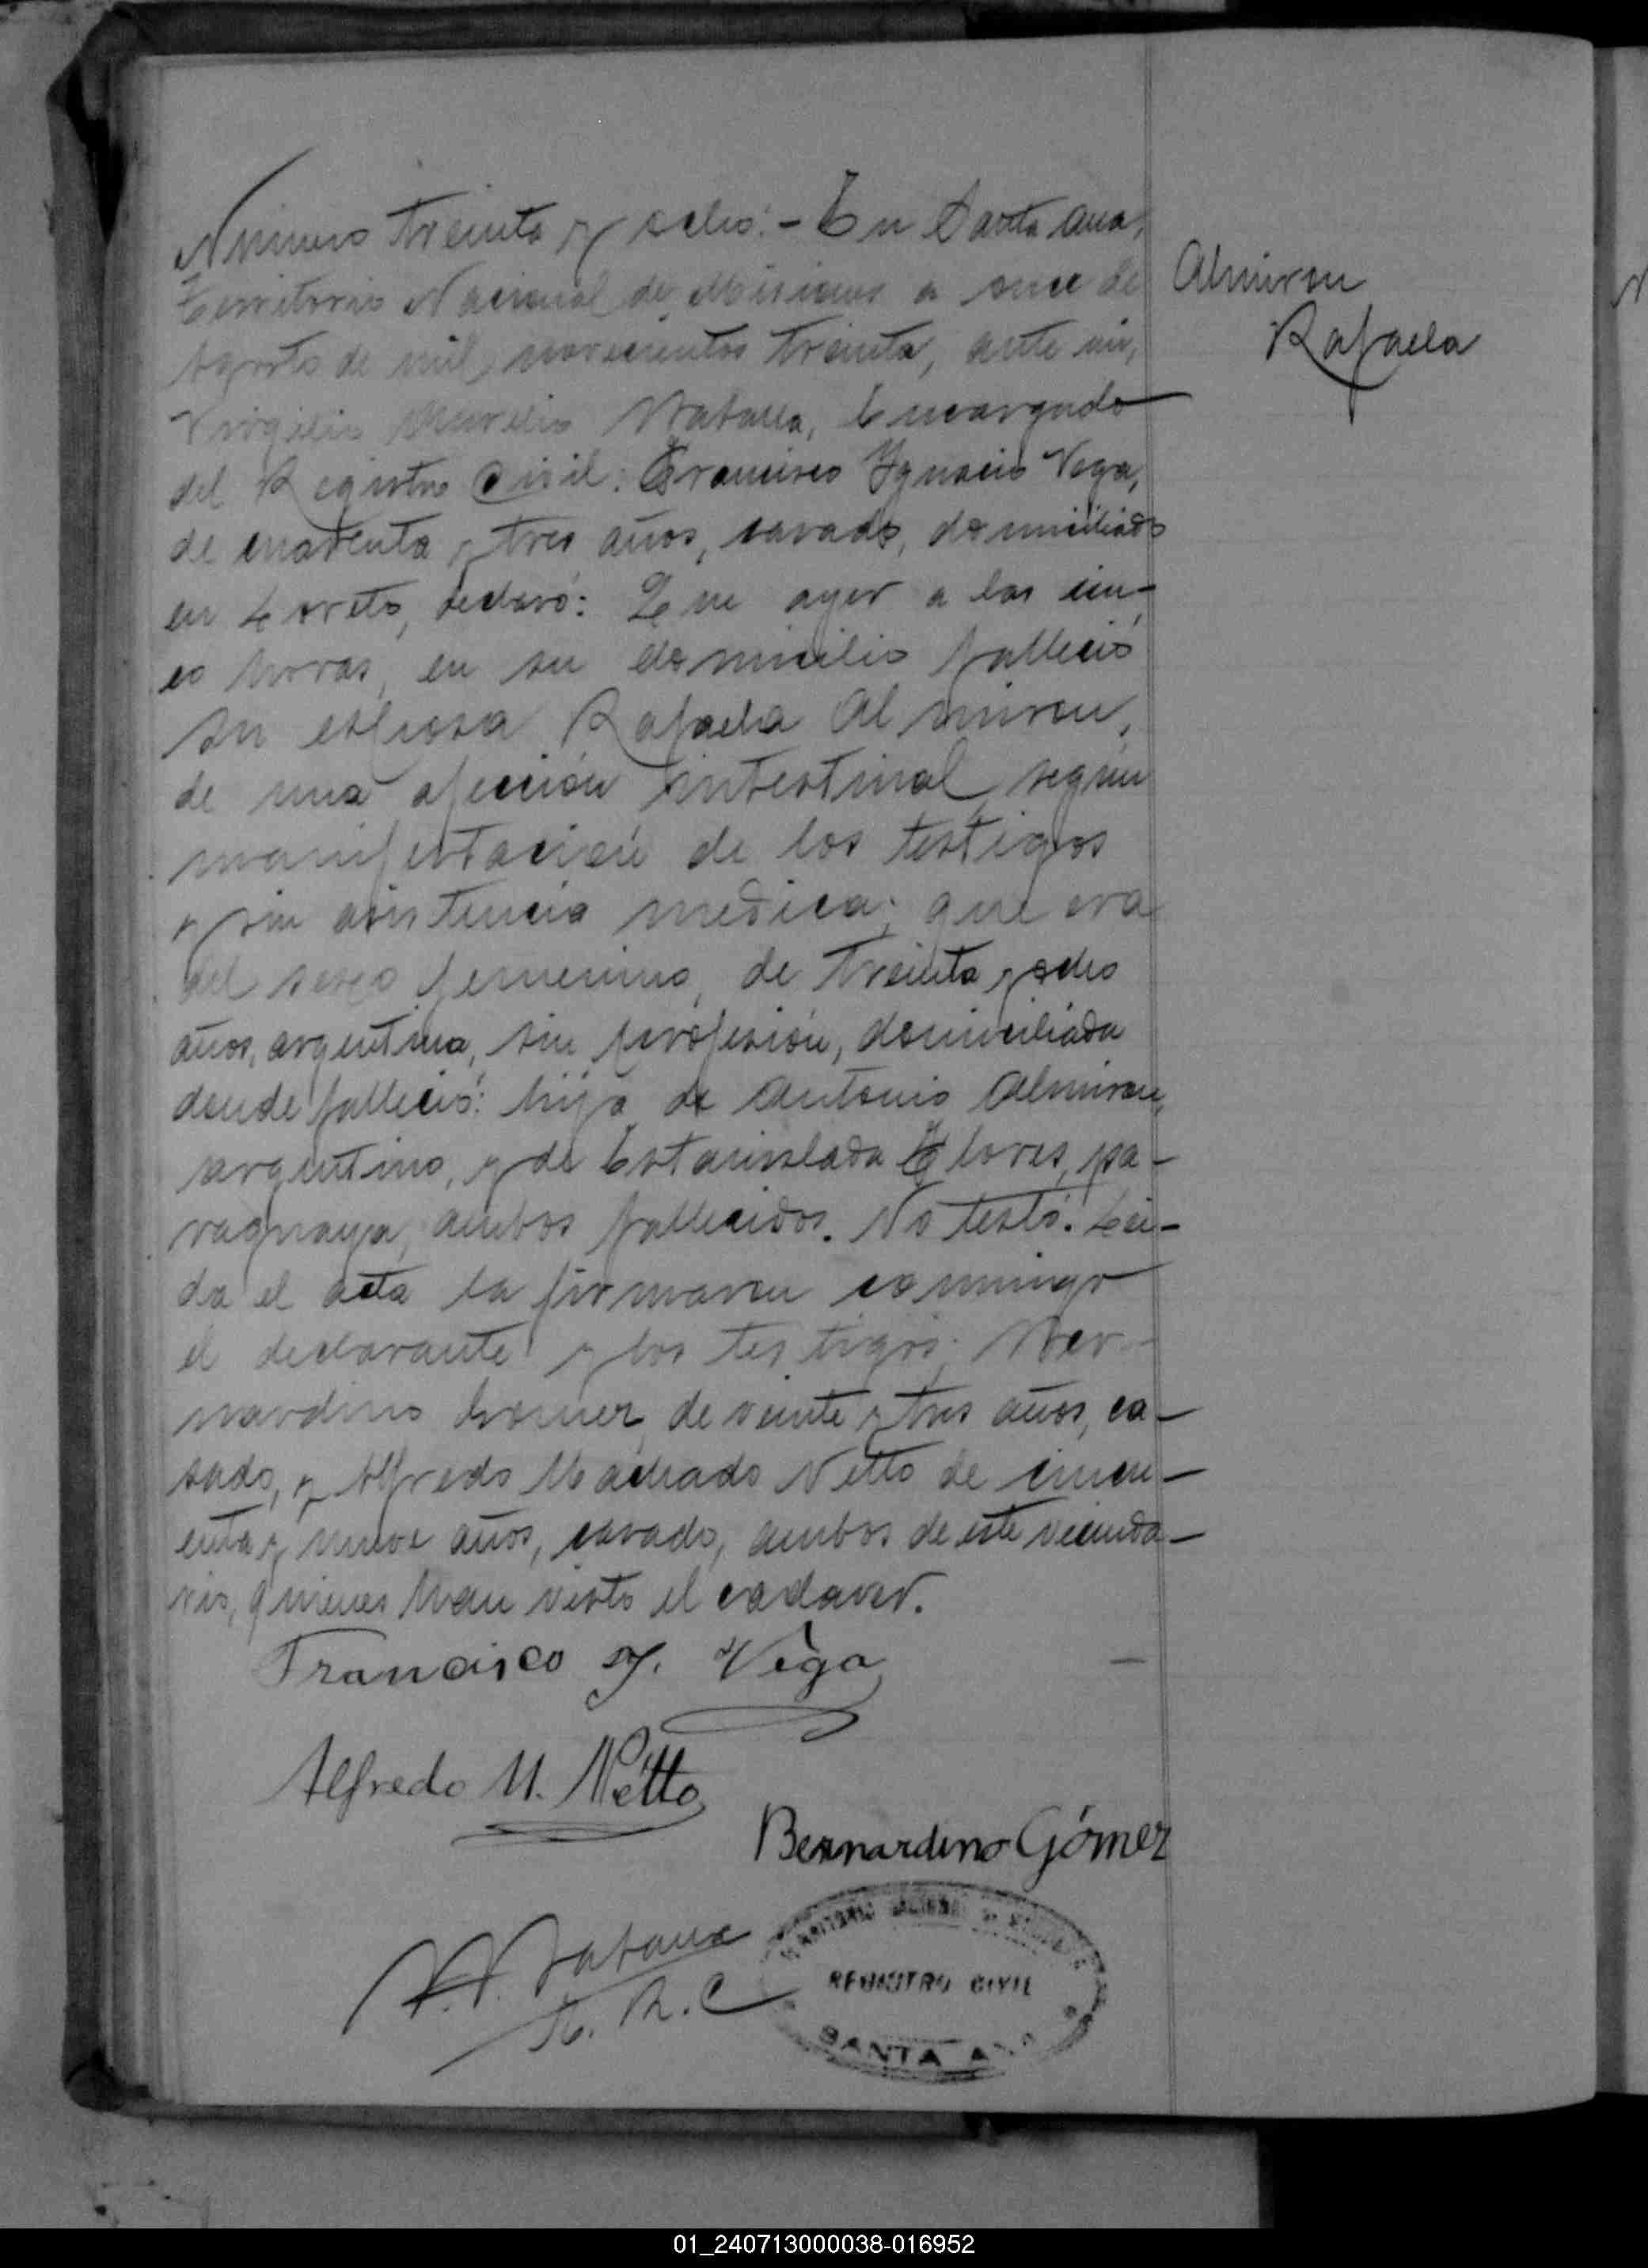 Número treinta y ocho:- En Santa Ana,
Almiron
Rafaela
Territorio Nacional de Misiones a once de
Agosto de mil novecientos treinta, ante mí,
Virgilio Aurelio Encargado
del Registro Civil: Francisco Ygnacio Vega,
de cuarenta y tres años, casado, domiciliado
en Loreto, declaró: Que ayer a las cin-
co horas, en su domicilio falleció
su esposa Rafaela Almiron,
de una afección intestinal, según
manifestación de los testigos
y sin asistencia medica; que era
del sexo femenino, de treinta y ocho
años, argentina, sin profesión, domiciliada
donde falleció: hija de Antonio Almiron,
argentino, y de Estanislada Flores, pa-
raguaya, ambos fallecidos. No testó. Lei-
da el acta la firmaron conmigo
el declarante y los testigos: Ber-
nardino Gomez, de veinte y tres años, ca-
sado, y Alfredo Machado Netto de cincu-
enta y nueve años, casado, ambos de este vecinda-
rio, quienes han visto el cadaver.
Francisco Y. Vega
Alfredo M. Netto
Bernardino Gómez
E. R. C
TERRITORIO NACIONAL DE MISIONES
REGISTRO CIVIL
SANTA ANA
01_240713000038-016952